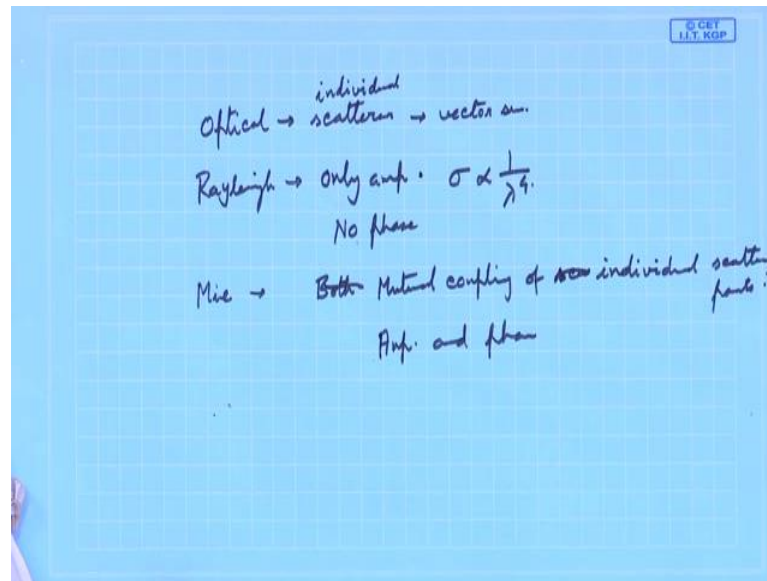 © CET
I.I.T. KGP
individual
Optical → scatterers → vector su.
Rayleigh → Only amp. σ ∝ 1/λ⁴.
No phase
Mie → Both Mutual coupling of individual scatte
Amp. and phase